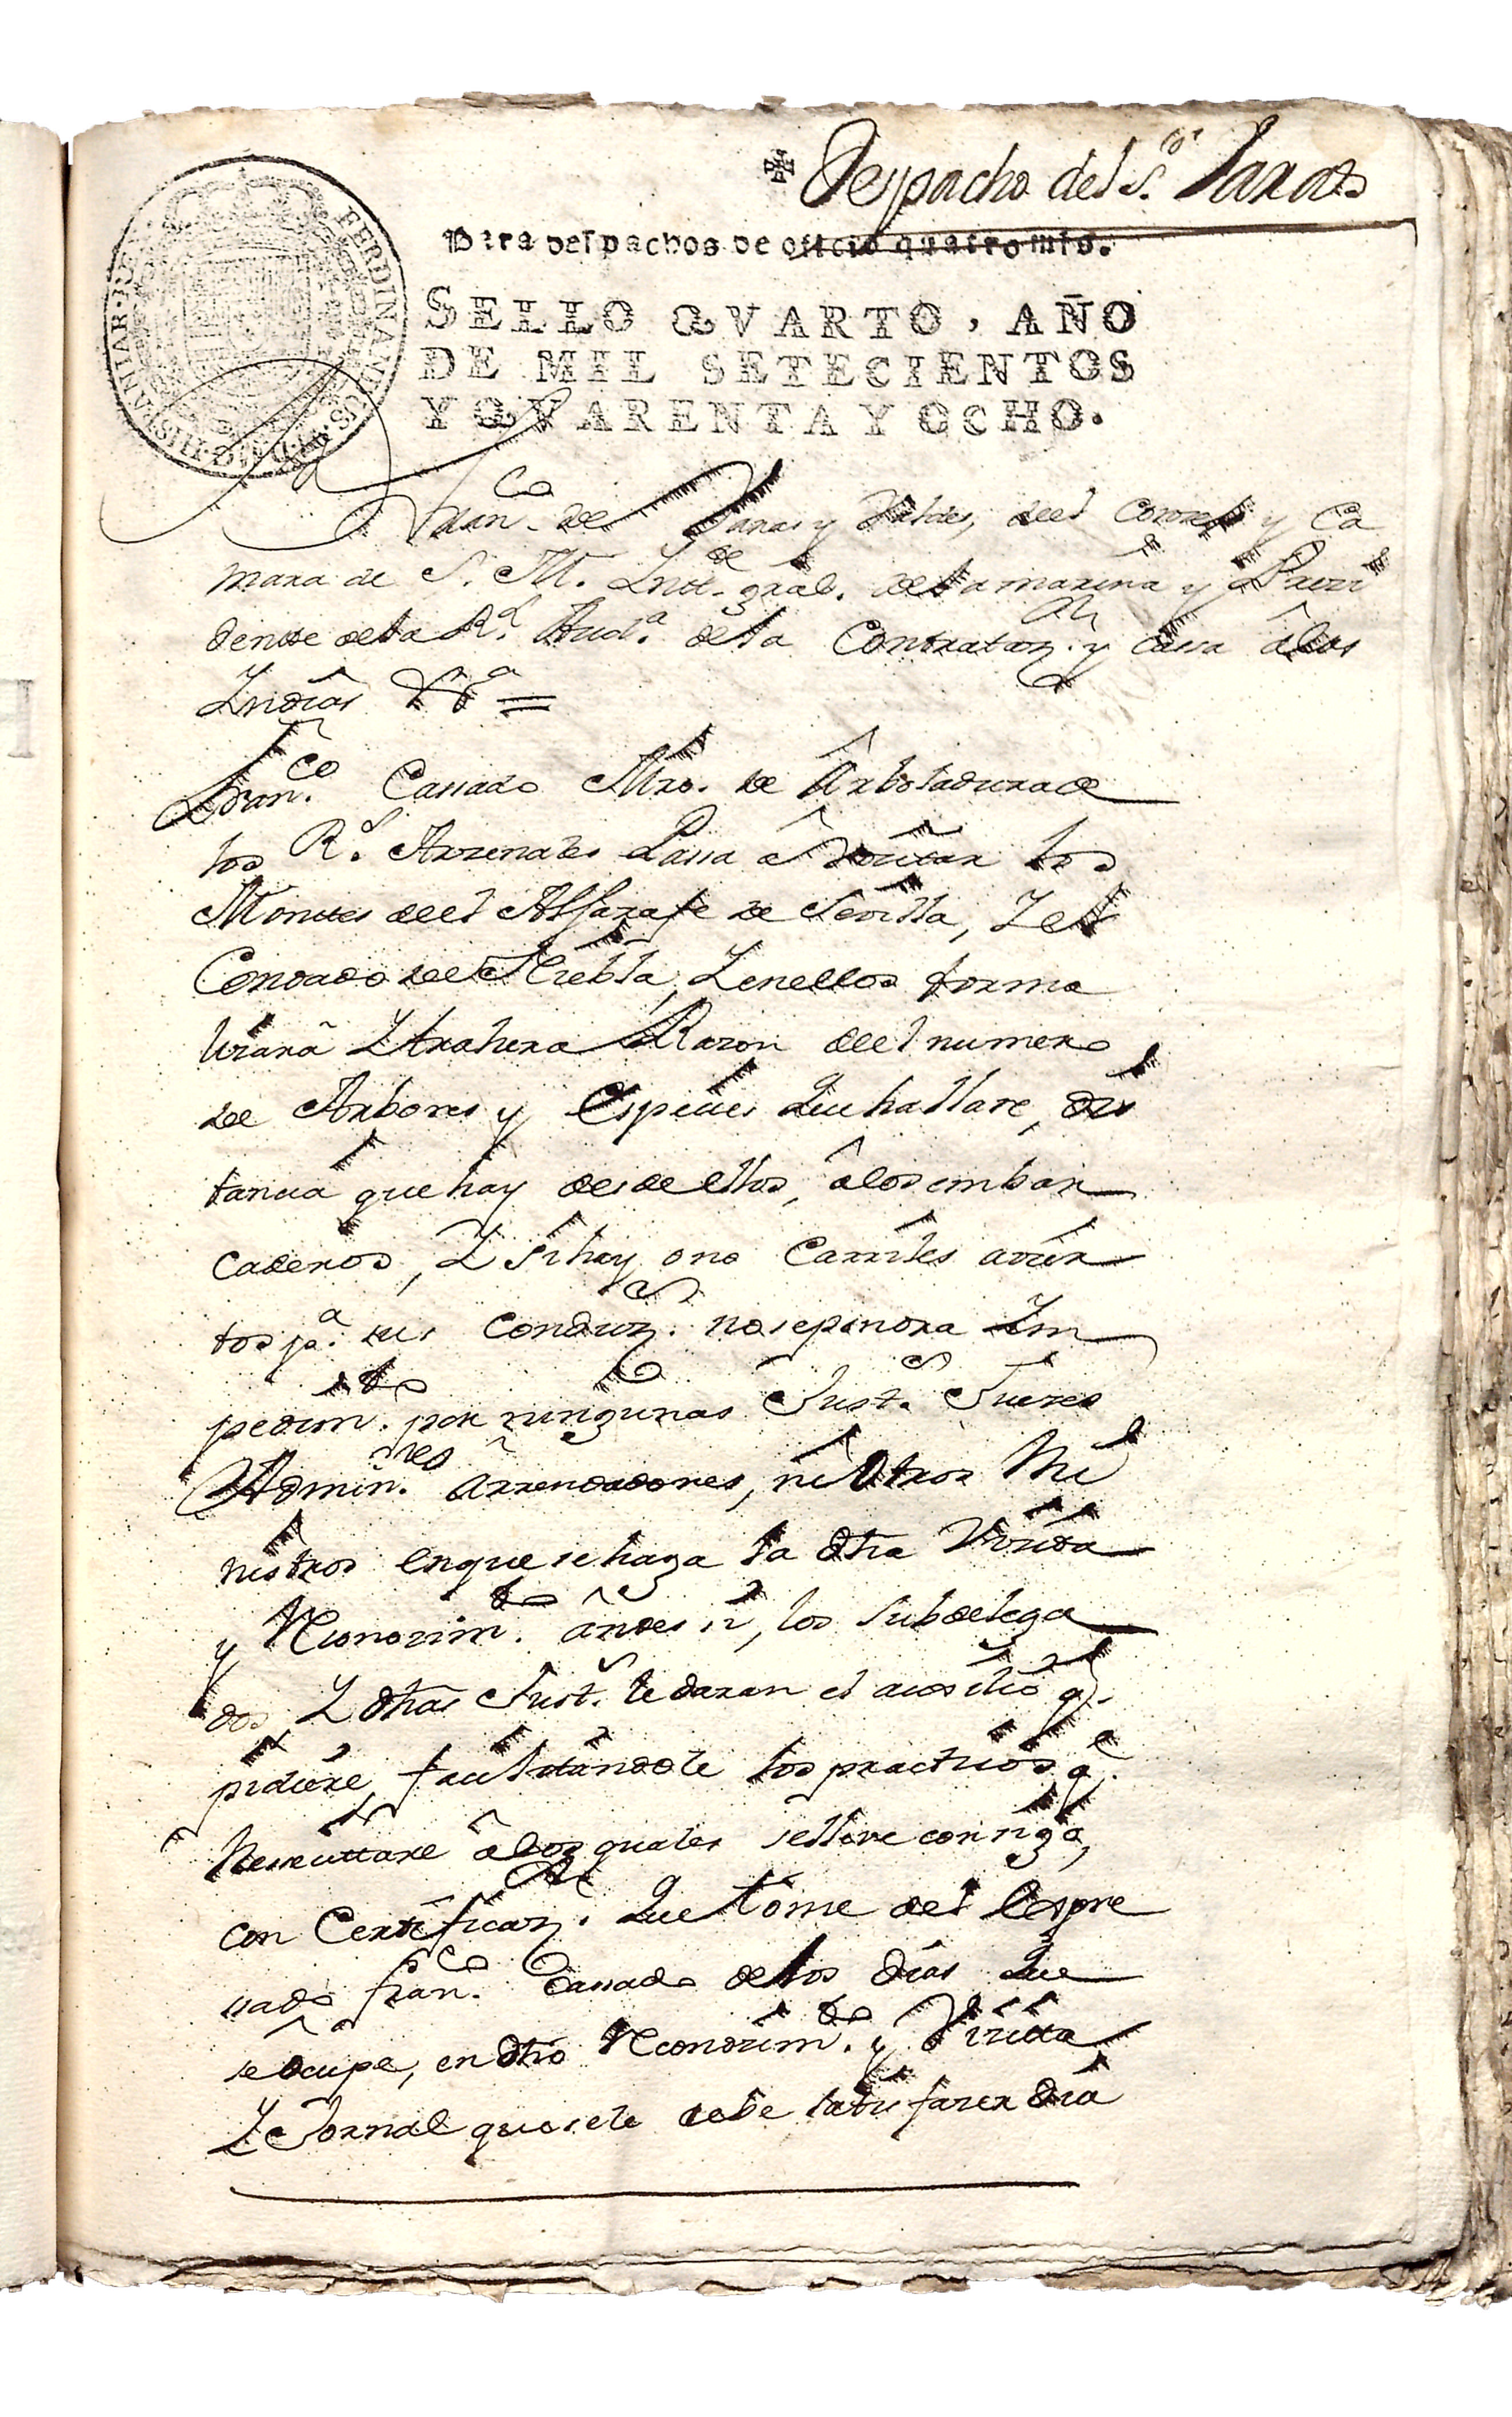 Despacho del S.or Varas
Para despachos de oficio quatro mrs.
SELLO QVARTO, AÑO
DE MIL SETECIENTOS
Y QVARENTA Y OCHO.
FERDINANDUS HISPANIAR
Fran.co de Varas y Valdes, del Consejo y Ca
mara de S. M. Intt.de gral. dela marina y Presi
dente dela R.l Aud.a dela Contrataz.n y casa â las
Indias &.a =
Fran.co Cassado Mro. de Arboladura de
los R.s Arzenales Passa â visitar los
Montes del Alfarafe de Sevilla, Y el
Condado de Niebla, Y en ellos forma
lizarâ Y trahera Razon del numero
de Arboles y Especies Que hallare, dis
tancia que hay desde ellos, â los embar
caderos, Y si hay o no Carriles avier
tos p.a sus Conduz.s no se pondra Im
pedim.to por ningunas Just.s Juezes
Admin.res arrendadores, ni Otros Mi
nistros en que se haga la dha Visita
y Reconozim.to antes si, los subdelega
dos Y dhas Just.s le daran el auxilio q.e
pidiere, facilitandole los practicos q.e
Nesesittare â los quales
con Certificaz.n Que tome del Espre
sado fran.co Cassado delos dias Que
se Ocupe, en dho Reconozim.to y Visitta
Y Jornal que sele debe satisfazer dia